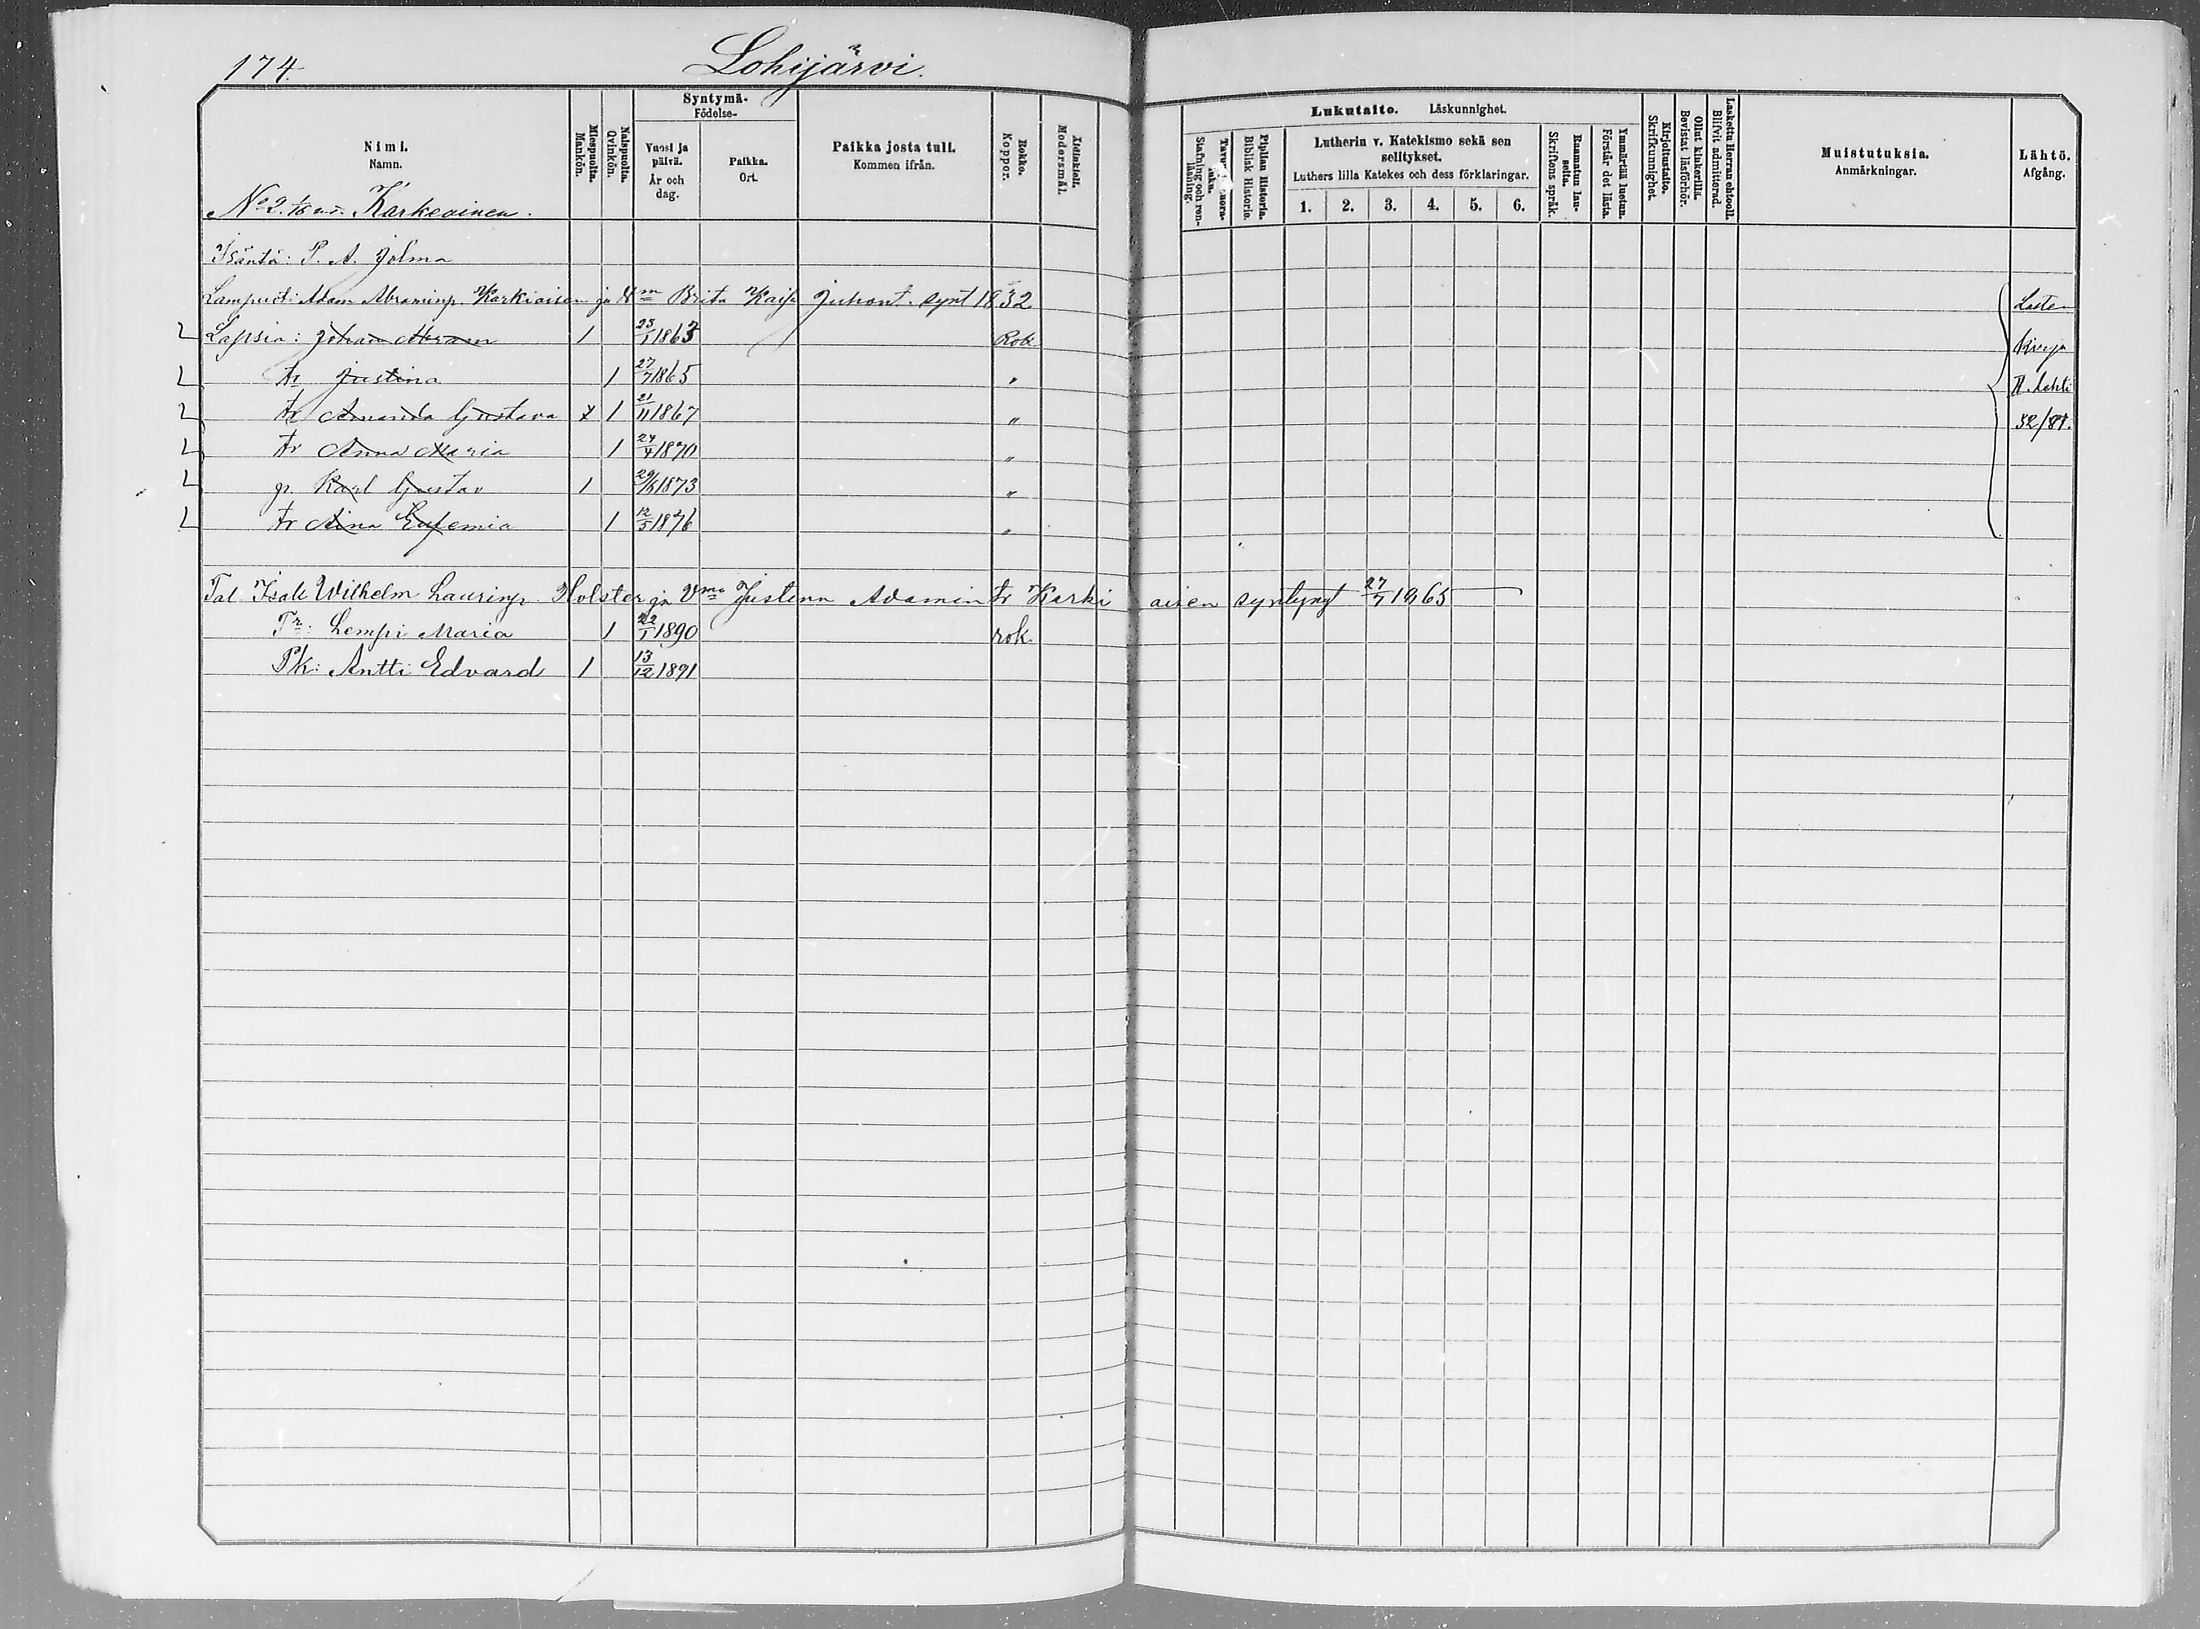 174.
Lohijärvi.
Nimi.
Namn.
Miespuolta.
Mankön.
Naispuolta.
Qvinkön.
Syntymä-
Födelse-
Vuosi ja
päivä.
År och
dag.
Paikka.
Ort.
Paikka josta tuli.
Kommen ifrån.
Rokko.
Koppor.
Äidinkieli.
Modersmål.
Stafning och ren-
läsning.
Piplian Historia.
Biblisk Historie.
Lukutaito. Läskunnighet.
Lutherin v. Katekismo sekä sen
selitykset.
Luthers lilla Katekes och dess förklaringar.
1. 2. 3. 4. 5. 6.
Raamatun lau-
seita.
Skriftens språk.
Ymmärtää luetun.
Förstår det lästa.
Kirjoitustaito.
Skrifkunnighet.
Ollut kinkerillä.
Bevistat läsförhör.
Laskettu Herran ehtooll.
Blifvit admitterad.
Muistutuksia.
Anmärkningar.
Lähtö.
Afgång.
No 2. Karkeainen.
Isäntä: P. A. Jolma
Lampuoti: Adam Abraminp. Karkiaisen ja Vm Brita Kaisa Juhont. synt 1832
Lapsia: Johan Abram 1 23/1 1863 Rok
tr Justina 1 27/7 1865 "
tr Amanda Gustava x 1 21/11 1867 "
tr Anna Maria 1 24/4 1870 "
p. Karl Gustav 1 29/6 1873 "
tr Aina Eufemia 1 12/5 1876 "
Lasten
kirja
II. lehti
52/87.
Tal. Isak Wilhelm Laurinp. Holster ja Vmo Justina Adamin tr Karkiaisen syntynyt 27/7 1865
Tr: Lempi Maria 1 22/1 1890 rok
Pk: Antti Edvard 1 13/12 1891